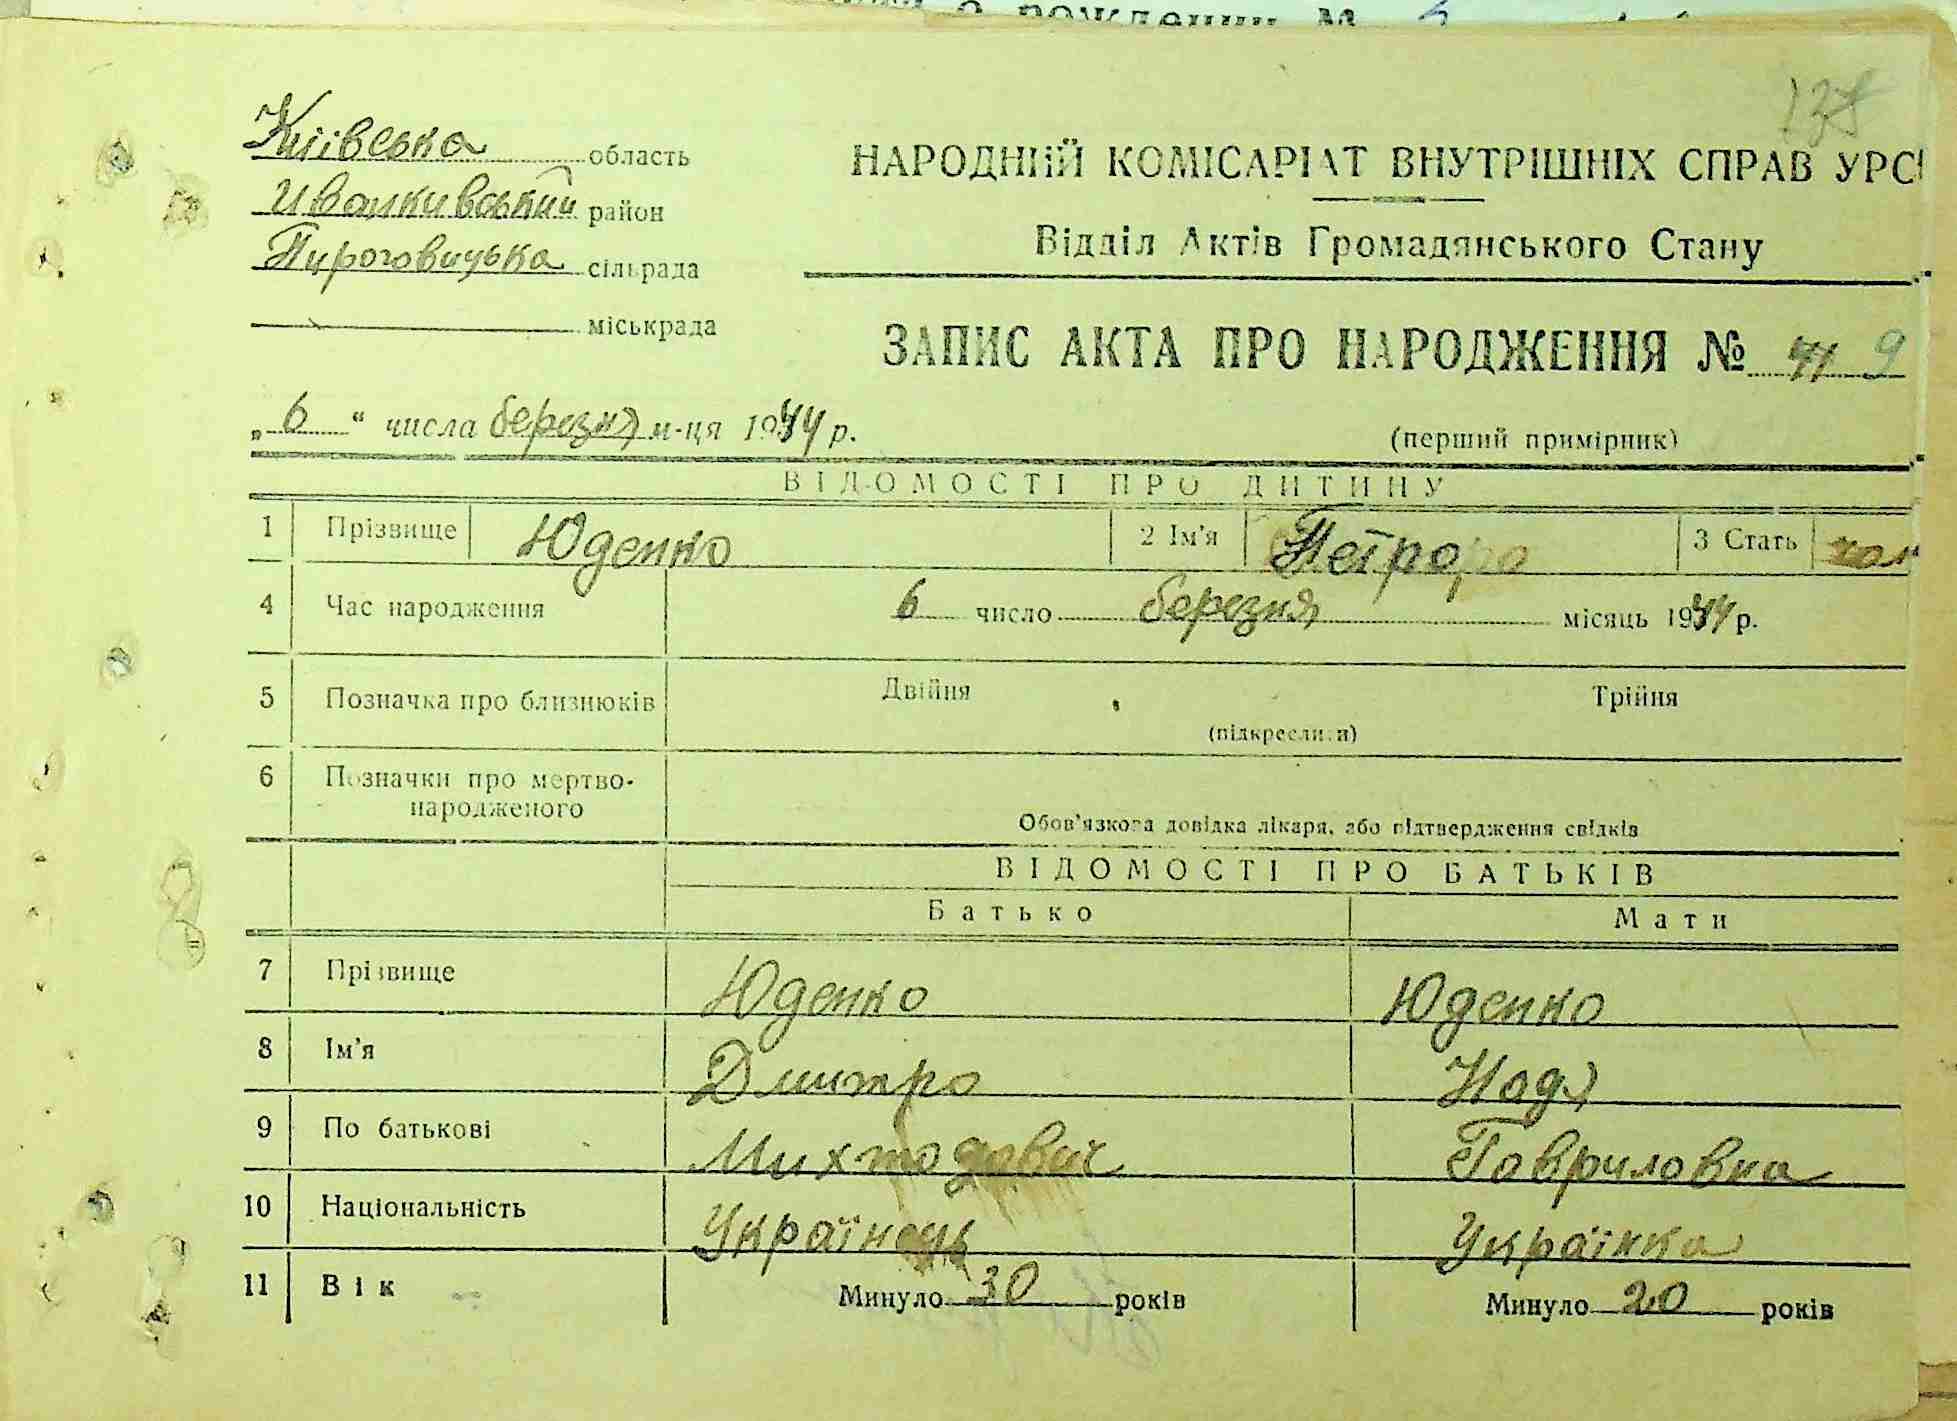 138
Київська область
Иванкивський район
Пироговицька сільрада
міськрада
НАРОДНИЙ КОМІСАРІАТ ВНУТРІШНІХ СПРАВ УРС
Відділ Актів Громадянського Стану
ЗАПИС АКТА ПРО НАРОДЖЕННЯ № 9
„ 6 “ числа березня м-ця 1944 р.
(перший примірник)
ВІДОМОСТІ ПРО ДИТИНУ
1 Прізвище Юденко 2 Ім'я Петро 3 Стать чол
4 Час народження 6 число березня місяць 1944 р.
5 Позначка про близнюків Двійня Трійня
(підкреслити)
6 Позначки про мертво-
народженого
Обов'язкова довідка лікаря, або підтвердження свідків
ВІДОМОСТІ ПРО БАТЬКІВ
Батько Мати
7 Прізвище Юденко Юденко
8 Ім'я Дмитро Надя
9 По батькові Михтодович Гавриловна
10 Національність Українець Українка
11 Вік Минуло 30 років Минуло 20 років